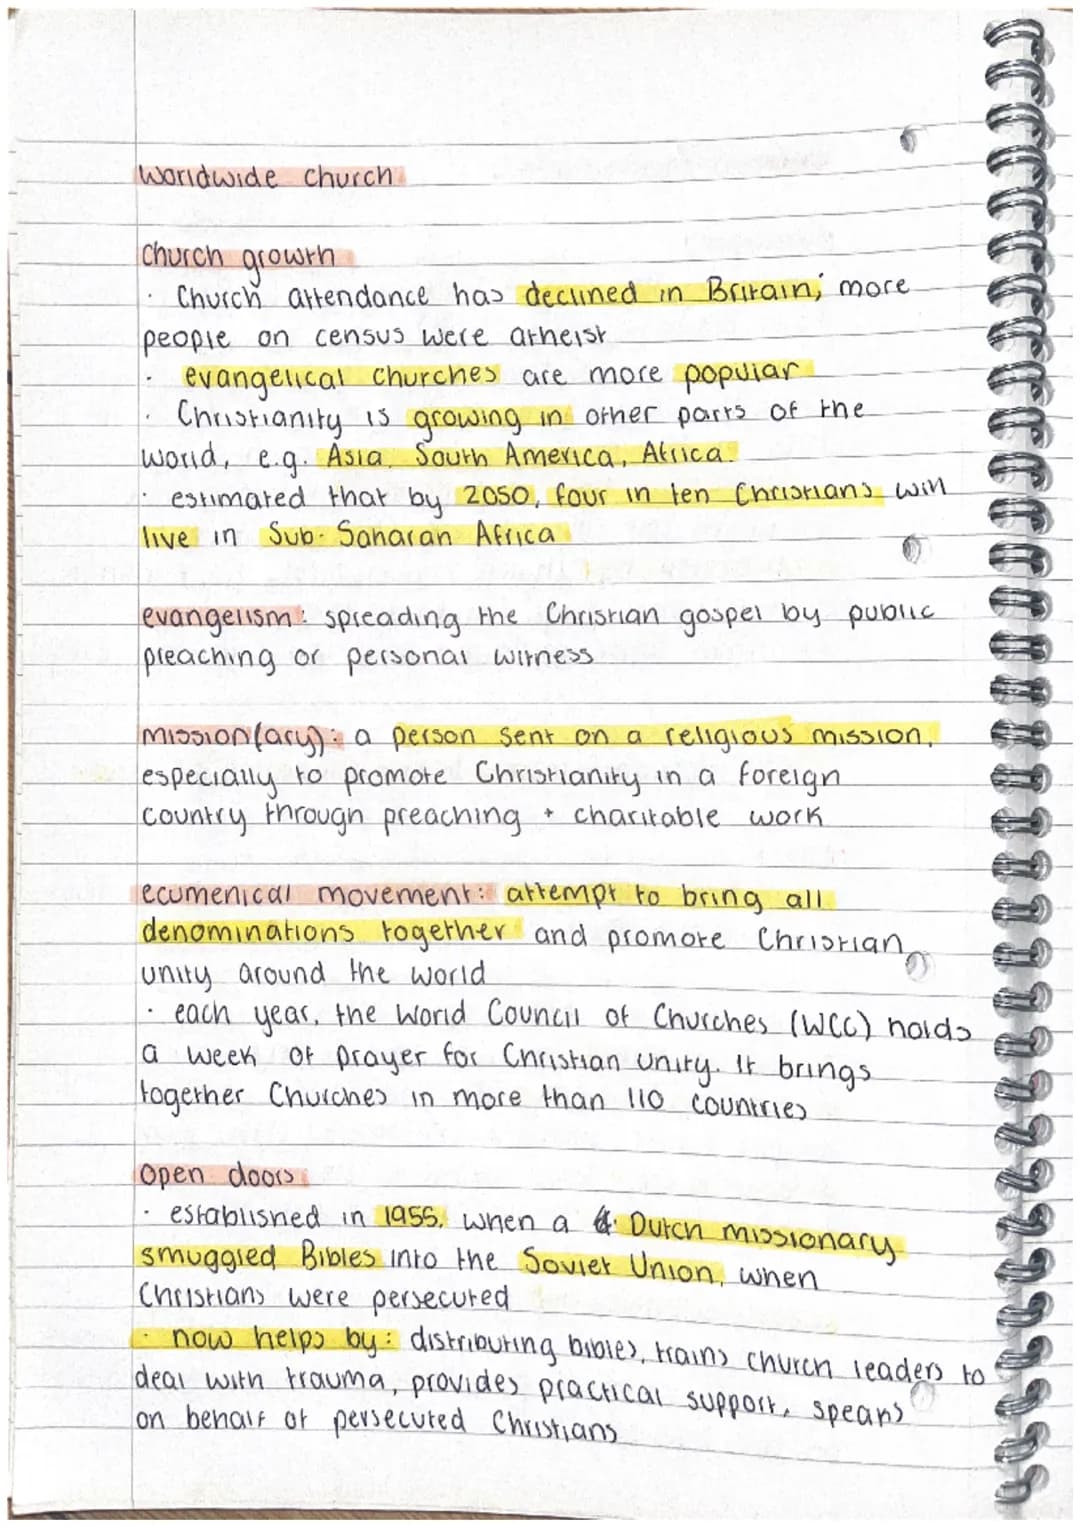 Worldwide church
Church growth
· Church attendance has declined in Britain; more
people on census were atheist
· evangelical churches are more popular
· Christianity is growing in other parts of the
world, e.g. Asia, South America, Africa.
· estimated that by 2050, four in ten Christians will
live in Sub-Saharan Africa
evangelism: spreading the Christian gospel by public
preaching or personal witness
mission(ary): a person sent on a religious mission,
especially to promote Christianity in a foreign
country through preaching + charitable work
ecumenical movement: attempt to bring all
denominations together and promote Christian
unity around the world
· each year, the World Council of Churches (WCC) holds
a week of prayer for Christian unity. It brings
together Churches in more than 110 countries
Open doors
· established in 1955, when a Dutch missionary
smuggled Bibles into the Soviet Union, when
Christians were persecuted
· now helps by: distributing bibles, trains church leaders to
deal with trauma, provides practical support, speaks
on behalf of persecuted Christians